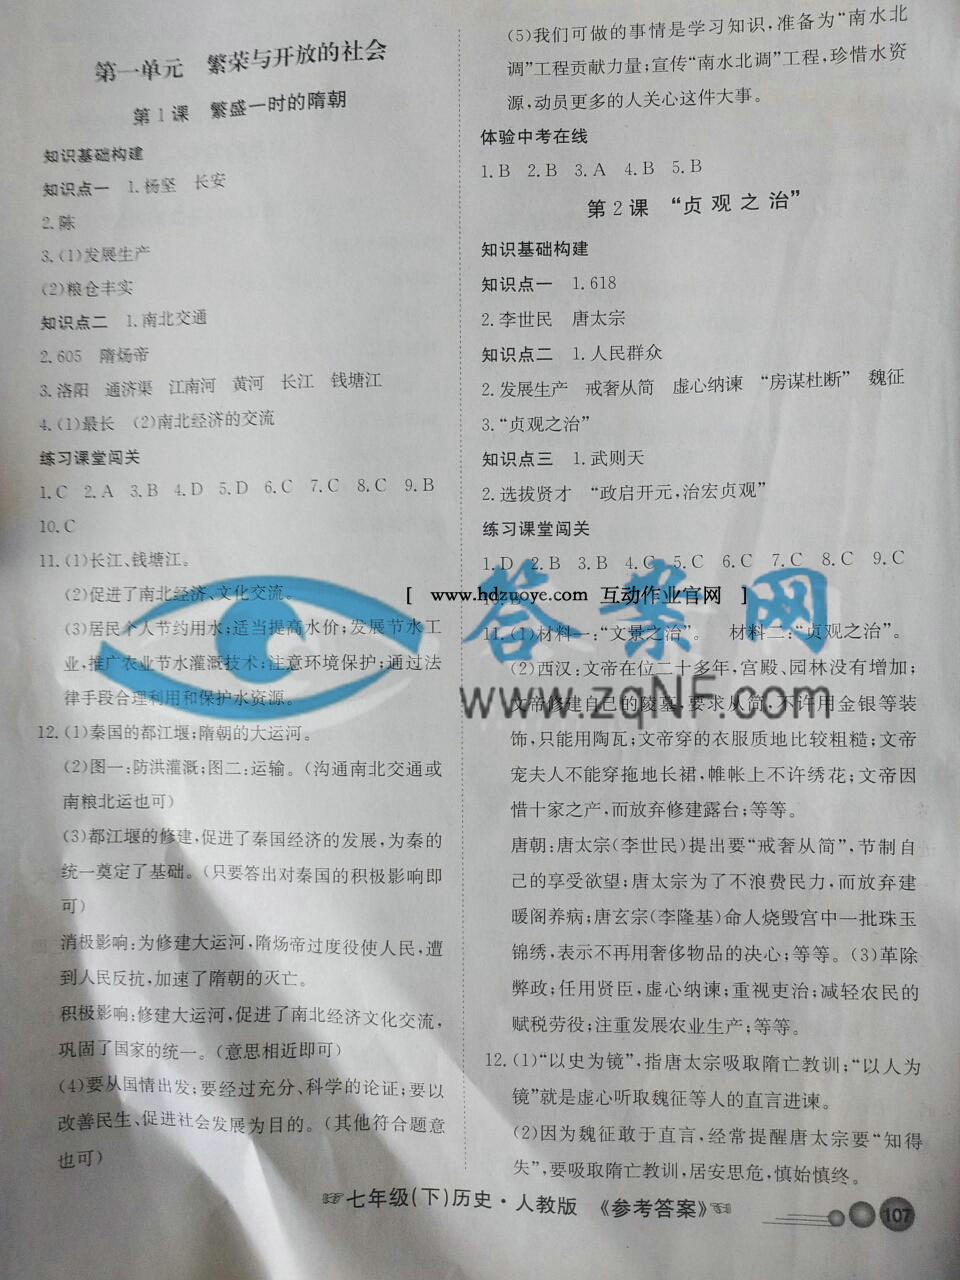 第一单元 繁荣与开放的社会
第1课 繁盛一时的隋朝
知识基础构建
知识点一 1.杨坚 长安
2.陈
3.(1)发展生产
(2)粮仓丰实
知识点二 1.南北交通
2.605 隋炀帝
3.洛阳 通济渠 江南河 黄河 长江 钱塘江
4.(1)最长 (2)南北经济的交流
练习课堂闯关
1.C 2.A 3.B 4.D 5.D 6.C 7.C 8.C 9.B
10.C
11.(1)长江、钱塘江。
(2)促进了南北经济、文化交流。
(3)居民个人节约用水;适当提高水价;发展节水工
业,推广农业节水灌溉技术;注意环境保护;通过法
律手段合理利用和保护水资源。
12.(1)秦国的都江堰;隋朝的大运河。
(2)图一:防洪灌溉;图二:运输。(沟通南北交通或
南粮北运也可)
(3)都江堰的修建,促进了秦国经济的发展,为秦的
统一奠定了基础。(只要答出对秦国的积极影响即
可)
消极影响:为修建大运河,隋炀帝过度役使人民,遭
到人民反抗,加速了隋朝的灭亡。
积极影响:修建大运河,促进了南北经济文化交流,
巩固了国家的统一。(意思相近即可)
(4)要从国情出发;要经过充分、科学的论证;要以
改善民生、促进社会发展为目的。(其他符合题意
也可)
(5)我们可做的事情是学习知识,准备为“南水北
调”工程贡献力量;宣传“南水北调”工程,珍惜水资
源,动员更多的人关心这件大事。
体验中考在线
1.B 2.B 3.A 4.B 5.B
第2课 “贞观之治”
知识基础构建
知识点一 1.618
2.李世民 唐太宗
知识点二 1.人民群众
2.发展生产 戒奢从简 虚心纳谏 “房谋杜断” 魏征
3.“贞观之治”
知识点三 1.武则天
2.选拔贤才 “政启开元,治宏贞观”
练习课堂闯关
1.D 2.B 3.B 4.C 5.C 6.C 7.C 8.C 9.C
[ www.hdzuoye.com 互动作业官网 ]
答案网
www.zqNF.com
11.(1)材料一:“文景之治”。 材料二:“贞观之治”。
(2)西汉:文帝在位二十多年,宫殿、园林没有增加;
文帝修建自己的陵墓,要求从简,不许用金银等装
饰,只能用陶瓦;文帝穿的衣服质地比较粗糙;文帝
宠夫人不能穿拖地长裙,帷帐上不许绣花;文帝因
惜十家之产,而放弃修建露台;等等。
唐朝:唐太宗(李世民)提出要“戒奢从简”,节制自
己的享受欲望;唐太宗为了不浪费民力,而放弃建
暖阁养病;唐玄宗(李隆基)命人烧毁宫中一批珠玉
锦绣,表示不再用奢侈物品的决心;等等。(3)革除
弊政;任用贤臣,虚心纳谏;重视吏治;减轻农民的
赋税劳役;注重发展农业生产;等等。
12.(1)“以史为镜”,指唐太宗吸取隋亡教训;“以人为
镜”就是虚心听取魏征等人的直言进谏。
(2)因为魏征敢于直言,经常提醒唐太宗要“知得
失”,要吸取隋亡教训,居安思危,慎始慎终。
七年级(下)历史·人教版 《参考答案》
107